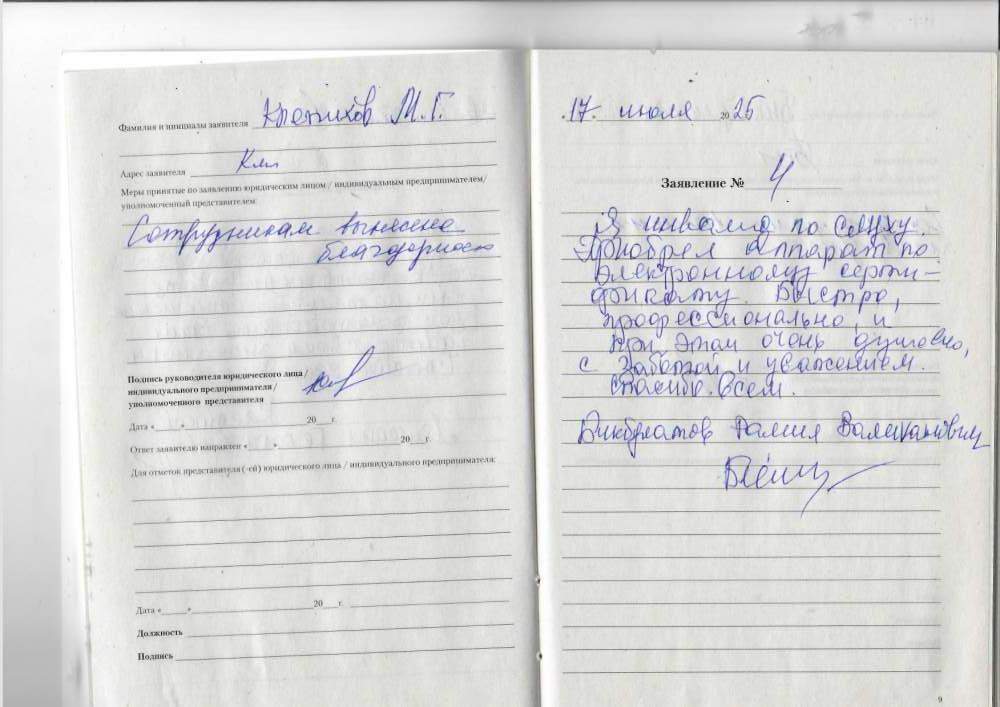 Фамилия и инициалы заявителя М.Г.
Адрес заявителя
Меры принятые по заявлению юридическим лицом / индивидуальным предпринимателем/
уполномоченный представителем
Сотрудникам вынесена
благодарность
Подпись руководителя юридического лица /
индивидуального предпринимателя /
уполномоченного представителя
Дата «___»___20__г.
Ответ заявителю направлен «___»___20__г.
Для отметок представителя (-ей) юридического лица / индивидуального предпринимателя:
Дата «___»___20__г.
Должность
Подпись
17. июля 2025
Заявление № 4
Я инвалид по слуху
Приобрел аппарат по
электронному серти-
фикату. Быстро,
профессионально, и
при этом очень душевно,
с заботой и уважением.
Спасибо всем.
Бикбулатов Валиханович
9